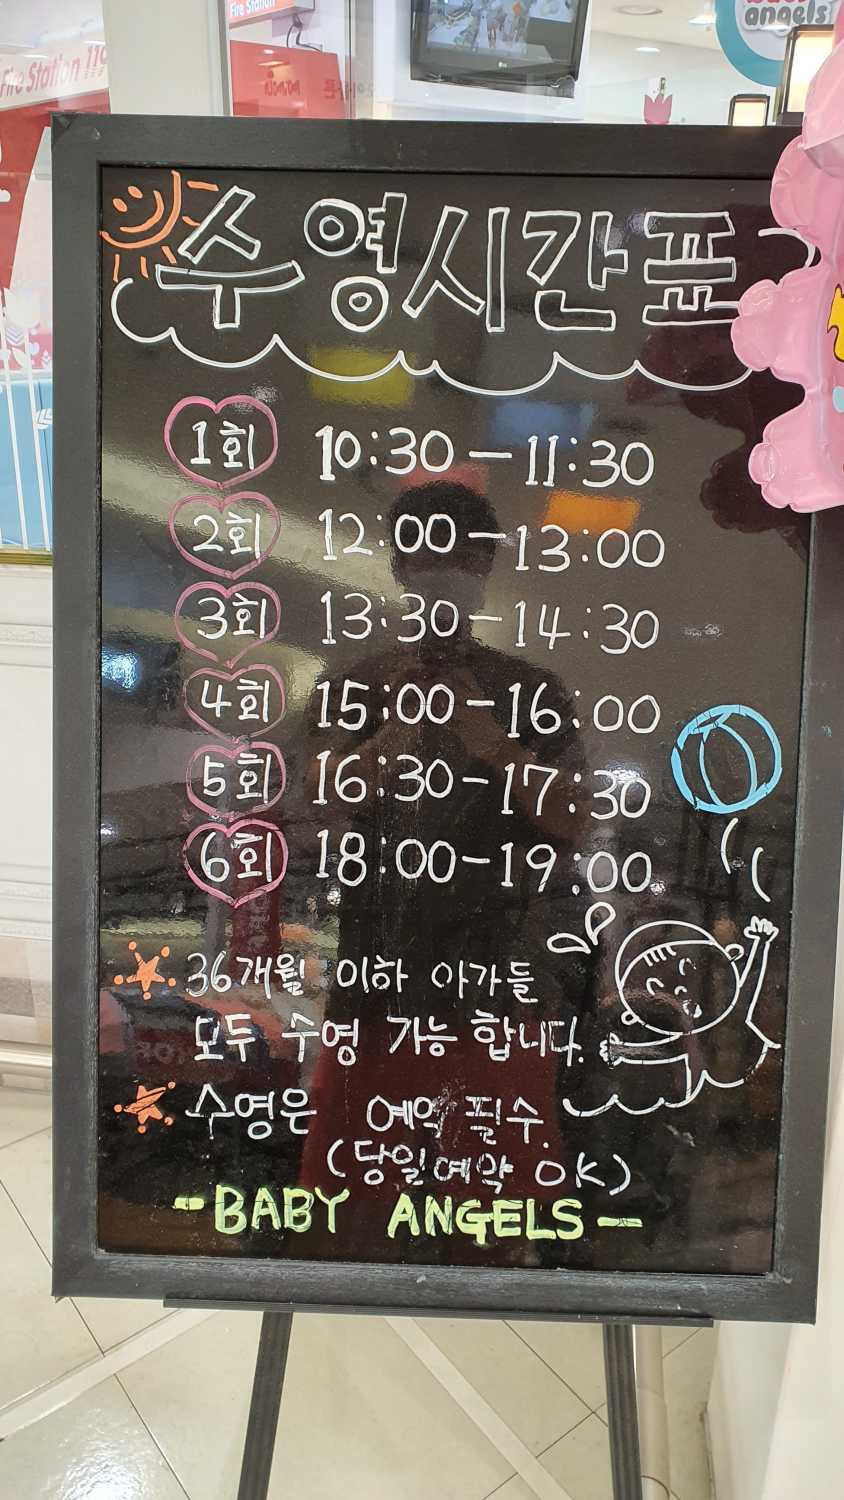 Fire Station
Fire Station 119
angels
LG
수영시간표
1회 10:30-11:30
2회 12:00-13:00
3회 13:30-14:30
4회 15:00-16:00
5회 16:30-17:30
6회 18:00-19:00
36개월 이하 아가들
모두 수영 가능 합니다.
수영은 예약 필수.
(당일예약 OK)
-BABY ANGELS-